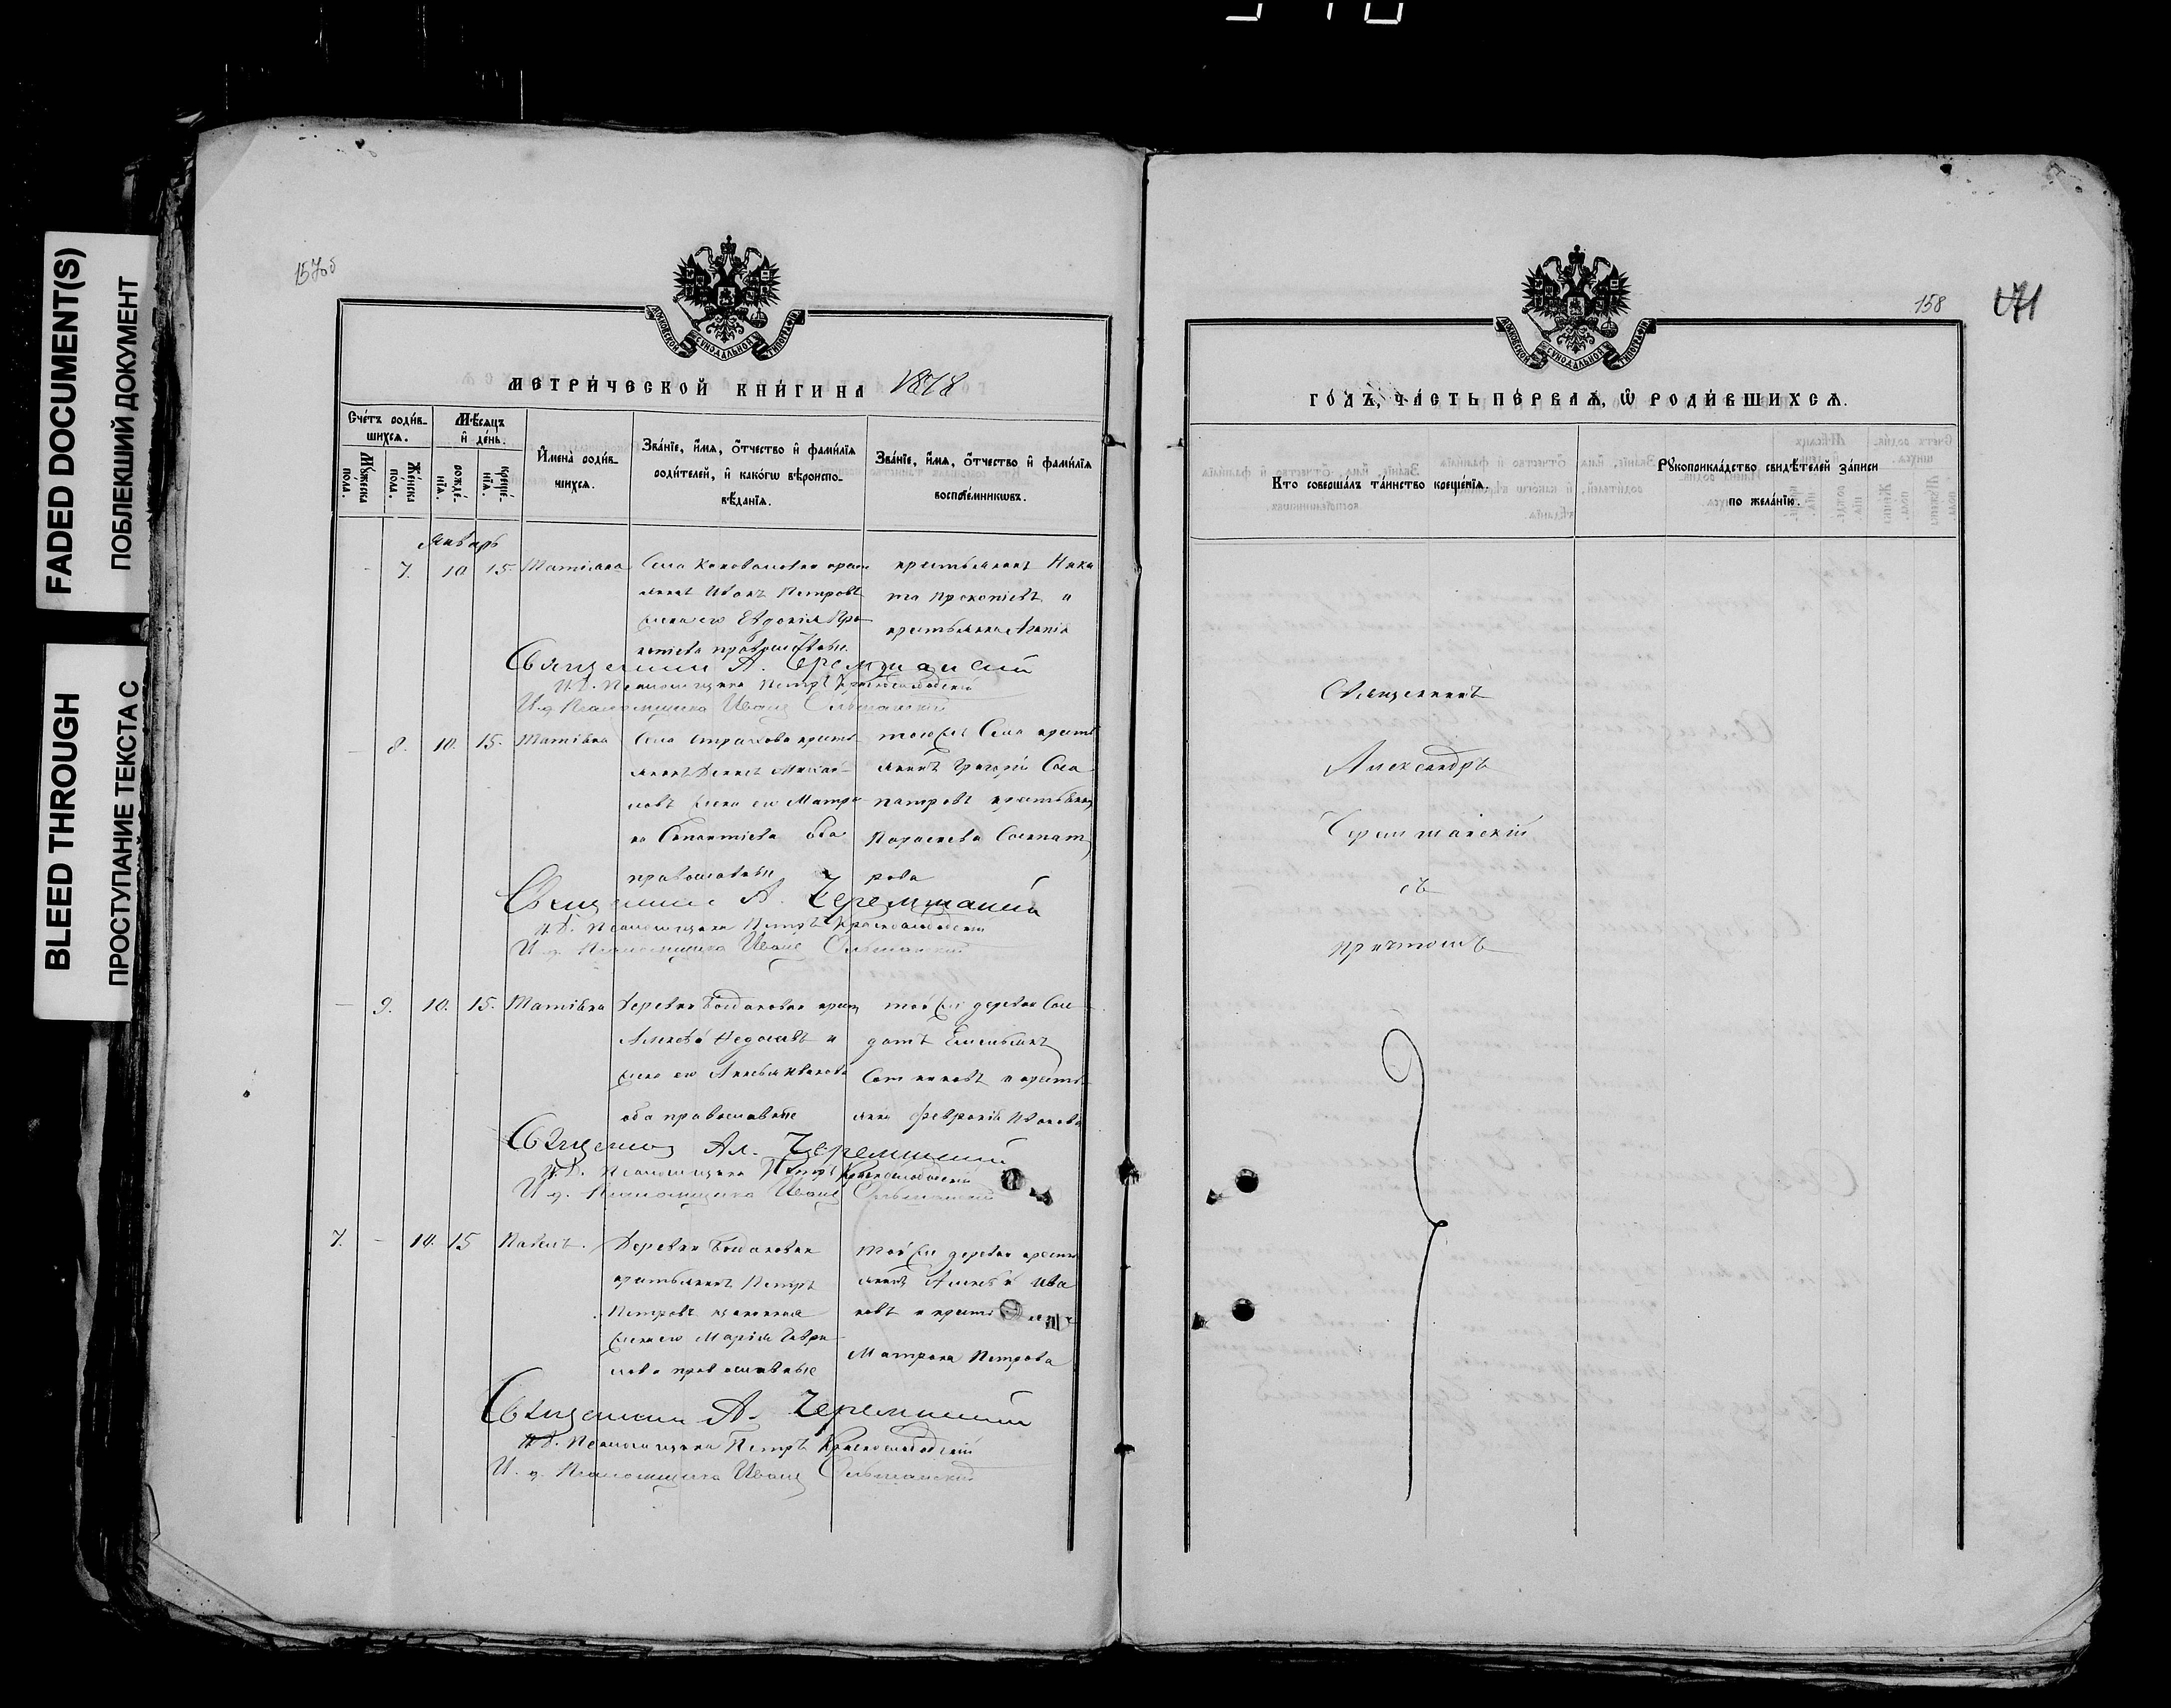 FADED DOCUMENT(S)
ПОБЛЕКШИЙ ДОКУМЕНТ
BLEED THROUGH
ПРОСТУПАНИЕ ТЕКСТА С
157об
МОСКОВСКОЙ СУНОДАЛЬНОЙ ТИПОГРАФІИ
МЕТРИЧЕСКОЙ КНИГИ НА 1878
Счетъ родив-
шихся.
Мѣсяцъ
и день.
Мужеска
пола.
Женска
пола.
рожде-
нія.
креще-
нія.
Имена родив-
шихся.
Званіе, имя, отчество и фамилія
родителей, и какогѡ вѣроиспо-
вѣданія.
Званіе, имя, отчество и фамилія
воспріемникѡвъ.
Январь
- 7. 10 15. Татіана
янинъ Иванъ Петровъ
жена его Евдокія Про-
крестьянинъ Ники
та Прокопіевъ и
крестьянка
православные
Священникъ А. Черемшанскій
И. Д. Псаломщика Петръ Краснослободскій
И. д. Псаломщика Иванъ Ольшанскій
- 8. 10. 15. Татіана
Села Страхова кресть-
янинъ
ловъ жена его Матро-
на оба
православные
тогоже Села кресть
янинъ Григорій Соси
патровъ крестьянка
Параскева Сосипат
рова
Священникъ А. Черемшанскій
И. Д. Псаломщика Петръ Краснослободскій
И. д. Псаломщика Иванъ Ольшанскій
- 9. 10. 15. Татіана
Деревни Богдановки крест
Алексѣй и
жена его
оба православные
тойже деревни Сол-
датъ Емельянъ
и кресть-
янка Февронія Иванова
Священникъ Ал. Черемшанскій
И. Д. Псаломщика Петръ Краснослободскій
И. д. Псаломщика Иванъ Ольшанскій
7. - 10. 15 Павелъ.
Деревни Богдановки
крестьянинъ Петръ
Петровъ и законная
жена его Марія Гаври
лова православные
тойже деревни кресть
янинъ Алексѣй Ива
новъ и кресть
Матрона Петрова
Священникъ А. Черемшанскій
И. Д. Псаломщика Петръ Краснослободскій
И. д. Псаломщика Иванъ Ольшанскій
158
МОСКОВСКОЙ СУНОДАЛЬНОЙ ТИПОГРАФІИ
ГОДЪ, ЧАСТЬ ПЕРВАЯ, Ѡ РОДИВШИХСЯ.
Кто совершалъ таинство крещенія.
Рукоприкладство свидѣтелей записи
по желанію.
Священникъ
Александръ
Черемшанскій
съ
причтомъ